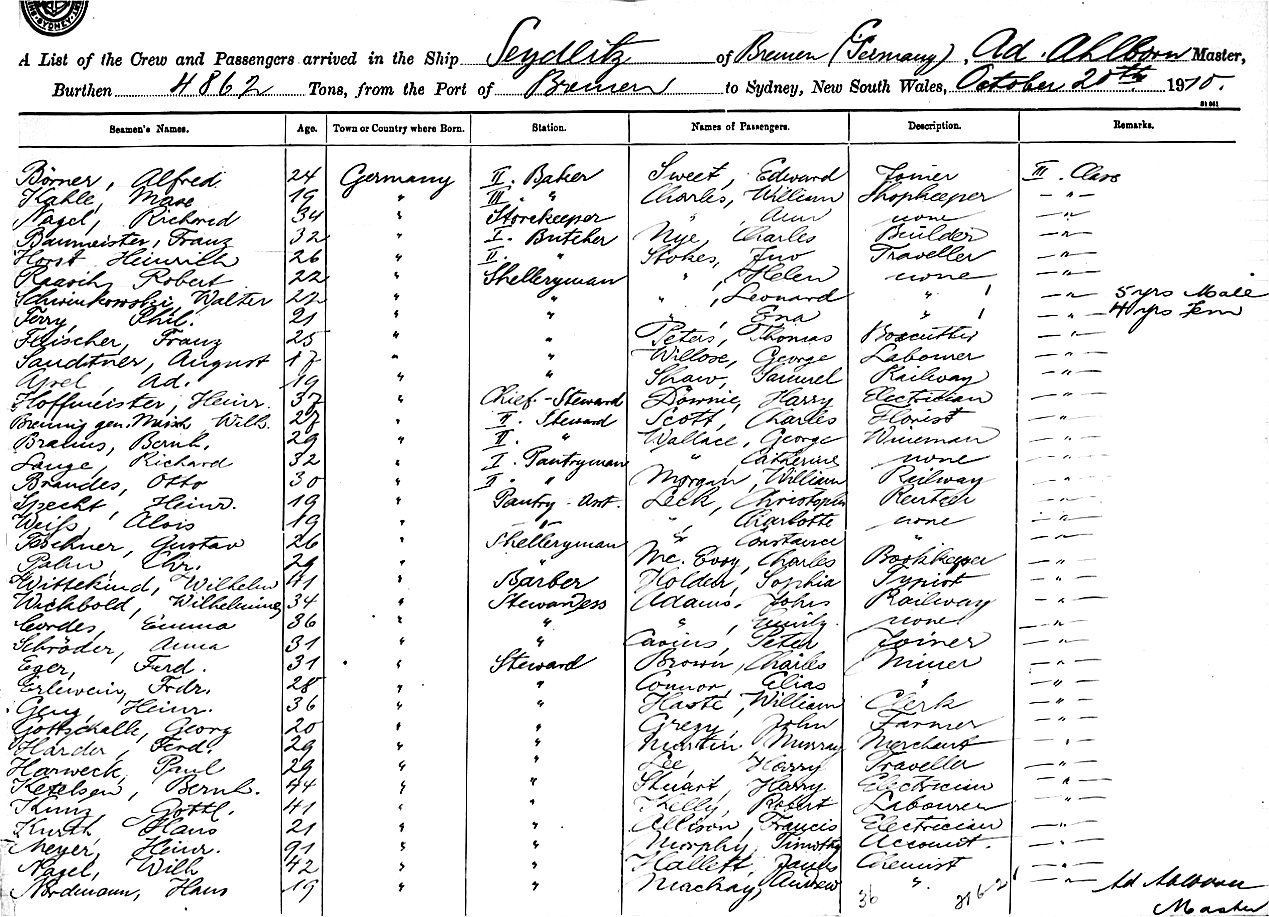 SYDNEY
A List of the Crew and Passengers arrived in the Ship Seydlitz of Bremen (Germany), Ad. Ahlborn Master,
Burthen 4862 Tons, from the Port of Bremen to Sydney, New South Wales, October 20th 1910.
Seamen's Names. Age. Town or Country where Born. Station. Names of Passengers. Description. Remarks.
Börner, Alfred 24 Germany II. Baker Sweet, Edward Joiner III. Class
Kahle, Max 19 " III. " Charles, William Shopkeeper — " —
Nagel, Richard 34 " Storekeeper " , Ann none — " —
Baumeister, Franz 32 " I. Butcher Nye, Charles Builder — " —
Horst Heinrich 26 " II. " Stokes, Jno Traveller — " —
Raasch Robert 22 " Shelleryman " , Helen none — " —
Schwinkowski, Walter 22 " " " , Leonard " 1 — " — 5 yrs Male
Ferry, Phil. 21 " " " , Ena " 1 — " — 4 yrs Fem
Fleischer, Franz 25 " " Peters, Thomas Boxcutter — " —
August 17 " " Willose, George Labourer — " —
Apel, Ad. 19 " " Shaw, Samuel Railway — " —
Hoffmeister, Heinr. 37 " Chief-Steward Downie, Harry Electrician — " —
Breunig gen. Wilh. 27 " II. Steward Scott, Charles Florist — " —
Brahms, Bernh. 29 " II. " Wallace, George Wineman — " —
Lange, Richard 32 " I. Pantryman " , Catherine none — " —
Brandes, Otto 30 " II. " Morgan, William Railway — " —
Specht, Heinr. 19 " Pantry-Ast. Leck, Christopher — " —
Weiß, Alois 19 " " " , Charlotte none — " —
Gustav 26 " Shelleryman " Constance " — " —
Palm, Chr. 29 " " Mc. Evoy, Charles Bookkeeper — " —
Wittekind, Wilhelm 41 " Barber Holder, Sophia Typist — " —
Wichbold, Wilhelmine 34 " Stewardess Adams, John Railway — " —
Cordes, Emma 36 " " " , Emily none — " —
Schröder, Anna 31 " " Peter Joiner — " —
Eger, Ferd. 31 " Steward Brown, Charles Miner — " —
Erlewein, Frdr. 28 " " Connor, Elias " — " —
Geng, Heinr. 36 " " Haste, William Clerk — " —
Gottschalk, Georg 20 " " Gregy, John Farmer — " —
Harder, Ferd. 29 " " Martin Murray Merchant — " —
Harweck, Paul 29 " " Lee, Harry Traveller — " —
Ketelsen, Bernh. 44 " " Stuart, Harry Electrician — " —
Kunz Gottl. 41 " " Kelly, Robert Labourer — " —
Kurth Hans 21 " " Allison, Francis Electrician — " —
Meyer, Heinr. " " Morphy, Timothy Account. — " —
Nagel, Wilh 42 " " Hallett, James Chemist — " —
Nordmann, Hans 19 " " Mackay, Andrew " — " — Ad Ahlborn
36 Master